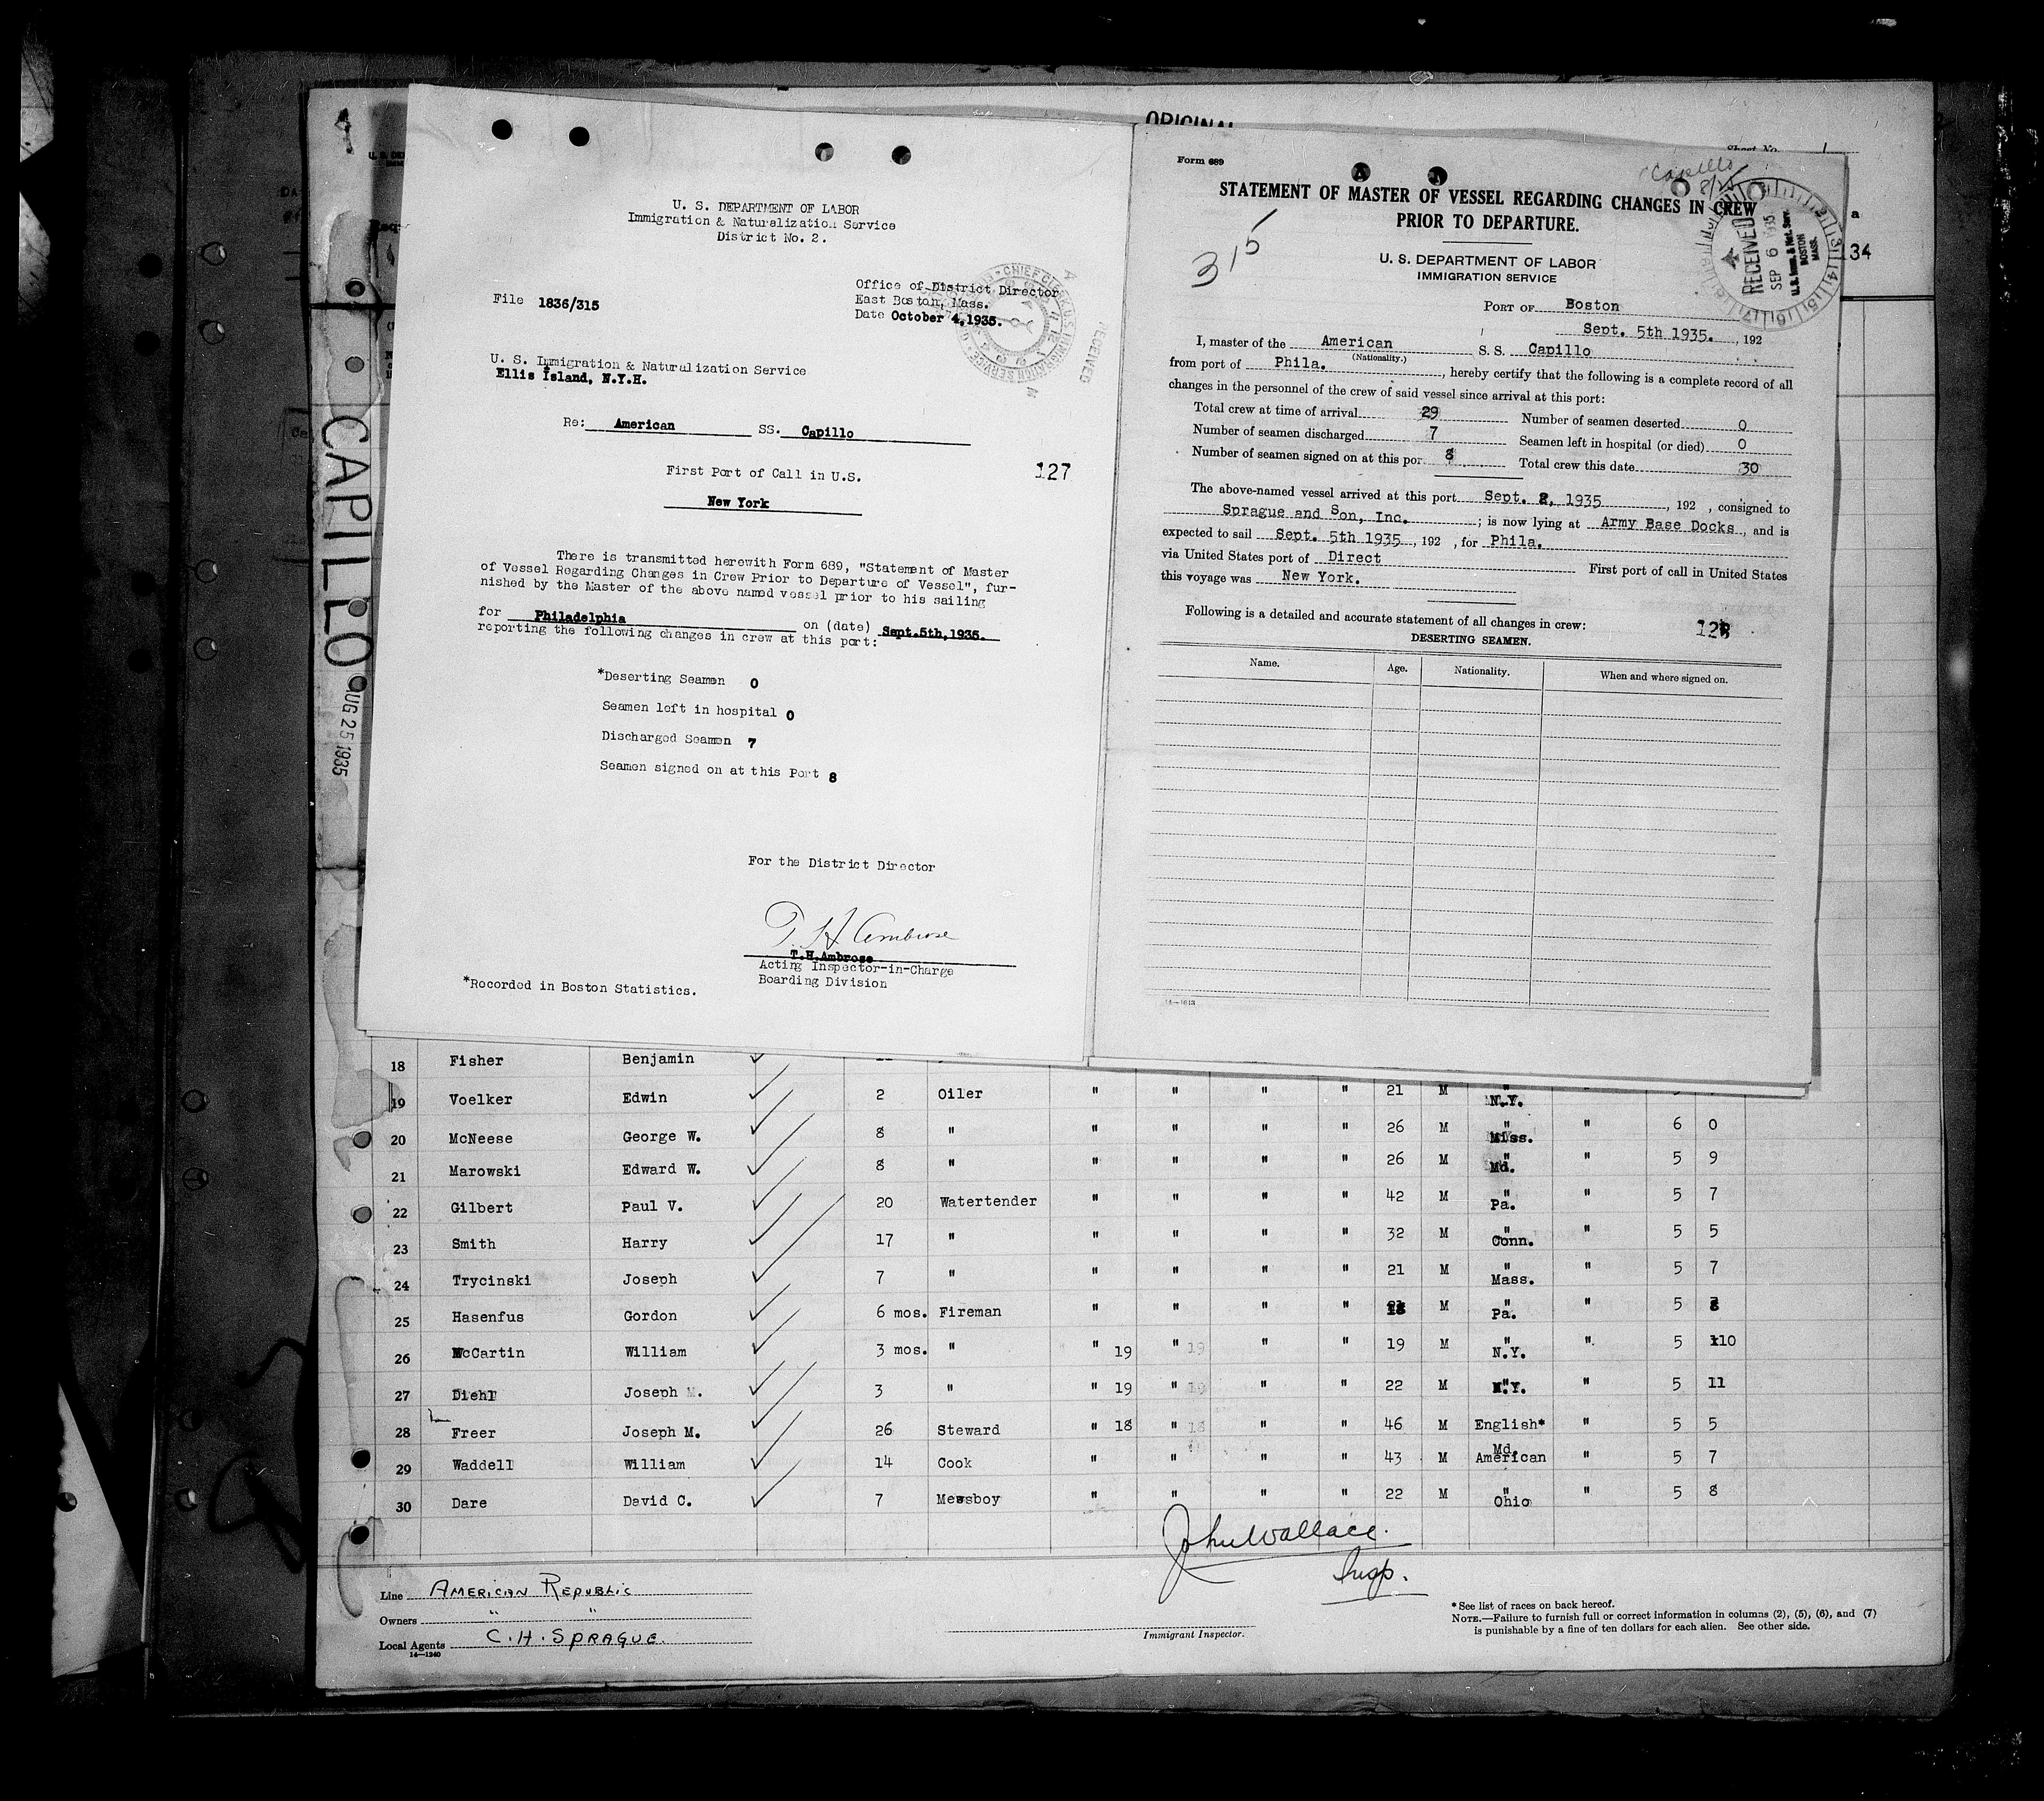 ORIGINAL
Sheet No. 1
34
CAPILLO
AUG 25 1935
U. S. DEPARTMENT OF LABOR
Immigration & Naturalization Service
District No. 2.
File 1836/315
Office of District Director
East Boston, Mass.
Date October 4, 1935.
U. S. Immigration & Naturalization Service
Ellis Island, N.Y.H.
Re: American SS. Capillo
First Port of Call in U.S.
127
New York
There is transmitted herewith Form 689, "Statement of Master
of Vessel Regarding Changes in Crew Prior to Departure of Vessel", fur-
nished by the Master of the above named vessel prior to his sailing
for Philadelphia on (date) Sept.5th,1935.
reporting the following changes in crew at this port:
*Deserting Seamen 0
Seamen left in hospital 0
Discharged Seamen 7
Seamen signed on at this Port 8
For the District Director
T. H. Ambrose
T.H.Ambrose
Acting Inspector-in-Charge
Boarding Division
*Recorded in Boston Statistics.
RECEIVED
Form 689
Capillo
8/25
STATEMENT OF MASTER OF VESSEL REGARDING CHANGES IN CREW
PRIOR TO DEPARTURE.
315
U. S. DEPARTMENT OF LABOR
IMMIGRATION SERVICE
RECEIVED
SEP 6 1935
U.S. Imm. & Nat. Serv.
BOSTON
MASS.
PORT OF Boston
Sept. 5th 1935. , 192
I, master of the American S. S. Capillo
(Nationality.)
from port of Phila. , hereby certify that the following is a complete record of all
changes in the personnel of the crew of said vessel since arrival at this port:
Total crew at time of arrival 29 Number of seamen deserted 0
Number of seamen discharged 7 Seamen left in hospital (or died) 0
Number of seamen signed on at this por 8 Total crew this date 30
The above-named vessel arrived at this port Sept. 2, 1935 , 192 , consigned to
Sprague and Son, Inc. ; is now lying at Army Base Docks , and is
expected to sail Sept. 5th 1935 , 192 , for Phila.
via United States port of Direct First port of call in United States
this voyage was New York.
Following is a detailed and accurate statement of all changes in crew: 128
DESERTING SEAMEN.
Name. Age. Nationality. When and where signed on.
14—1613
18 Fisher Benjamin
19 Voelker Edwin 2 Oiler " " " " 21 M " N.Y.
20 McNeese George W. 8 " " " " " 26 M " Miss. " 6 0
21 Marowski Edward W. 8 " " " " " 26 M " Md. " 5 9
22 Gilbert Paul V. 20 Watertender " " " " 42 M " Pa. " 5 7
23 Smith Harry 17 " " " " " 32 M " Conn. " 5 5
24 Trycinski Joseph 7 " " " " " 21 M " Mass. " 5 7
25 Hasenfus Gordon 6 mos. Fireman " " " " M " Pa. " 5
26 McCartin William 3 mos. " " 19 " 19 " " 19 M " N.Y. " 5 10
27 Diehl Joseph M. 3 " " 19 " 19 " " 22 M " N.Y. " 5 11
28 Freer Joseph M. 26 Steward " 18 " 18 " " 46 M English* " 5 5
29 Waddell William 14 Cook " " " " 43 M Md. American " 5 7
30 Dare David C. 7 Messboy " " " " 22 M " Ohio " 5 8
John Wallace.
Insp.
Line AMERICAN REPUBLIC
Owners " "
Local Agents C. H. SPRAGUE.
14—1240
Immigrant Inspector.
* See list of races on back hereof.
NOTE.—Failure to furnish full or correct information in columns (2), (5), (6), and (7)
is punishable by a fine of ten dollars for each alien. See other side.